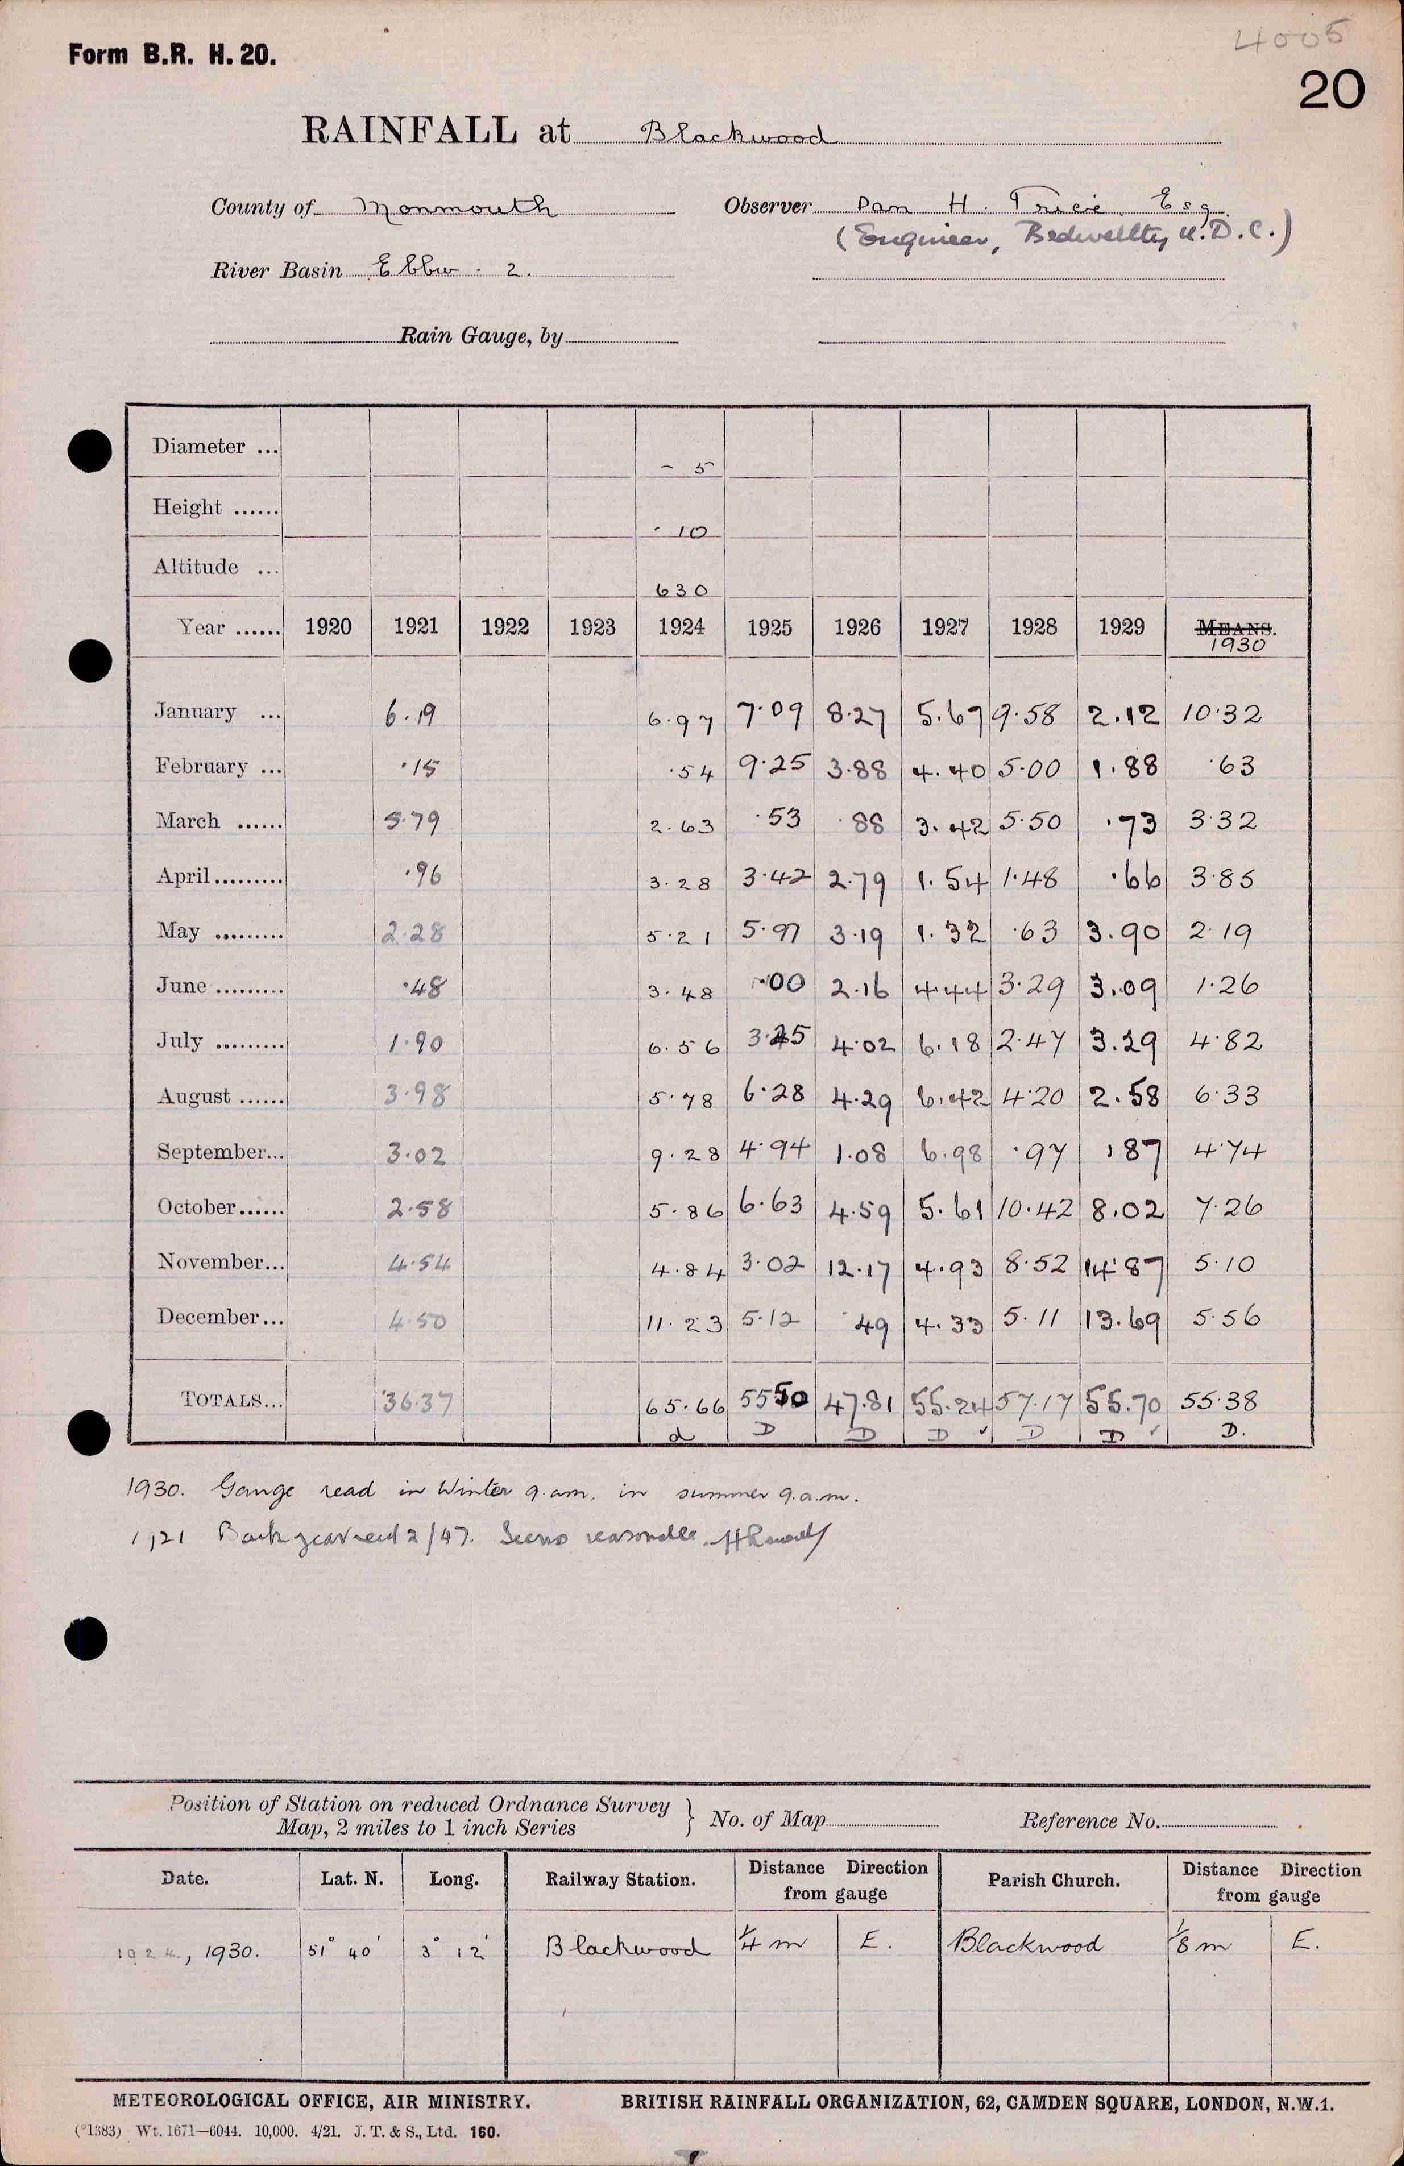 4005
Form B.R. H. 20.
20
RAINFALL at Blackwood
County of Monmouth Observer Dan H. Price Esq.
(Engineer, Bedwellty U.D.C.)
River Basin Ebbw . 2.
Rain Gauge, by
Diameter ... - 5
Height ...... . 10
Altitude ... 630
Year ...... 1920 1921 1922 1923 1924 1925 1926 1927 1928 1929 MEANS.
1930
January ... 6.19 6.97 7.09 8.27 5.67 9.58 2.12 10.32
February ... .15 .54 9.25 3.88 4.40 5.00 1.88 .63
March ...... 5.79 2.63 .53 .88 3.42 5.50 .73 3.32
April......... .96 3.28 3.42 2.79 1.54 1.48 .66 3.85
May ......... 2.28 5.21 5.97 3.19 1.32 .63 3.90 2.19
June ......... .48 3.48 .00 2.16 4.44 3.29 3.09 1.26
July ......... 1.90 6.56 3.25 4.02 6.18 2.47 3.29 4.82
August ...... 3.98 5.78 6.28 4.29 6.42 4.20 2.58 6.33
September... 3.02 9.28 4.94 1.08 6.98 .97 .87 4.74
October...... 2.58 5.86 6.63 4.59 5.61 10.42 8.02 7.26
November... 4.54 4.84 3.02 12.17 4.93 8.52 14.87 5.10
December... 4.50 11.23 5.12 .49 4.33 5.11 13.69 5.56
TOTALS... 36.37 65.66 55.50 47.81 55.24 57.17 55.70 55.38
d D D D ✓ D D ✓ D.
1930. Gauge read in Winter 9.a.m. in summer 9.a.m.
1921 Back year recd 2/47. Seems reasonable.
Position of Station on reduced Ordnance Survey
Map, 2 miles to 1 inch Series } No. of Map Reference No.
Date. Lat. N. Long. Railway Station. Distance Direction
from gauge Parish Church. Distance Direction
from gauge
1924, 1930. 51° 40' 3° 12' Blackwood 1/4 m E. Blackwood 1/8 m E.
METEOROLOGICAL OFFICE, AIR MINISTRY. BRITISH RAINFALL ORGANIZATION, 62, CAMDEN SQUARE, LONDON, N.W.1.
(*1383) Wt. 1671—6044. 10,000. 4/21. J. T. & S., Ltd. 160.